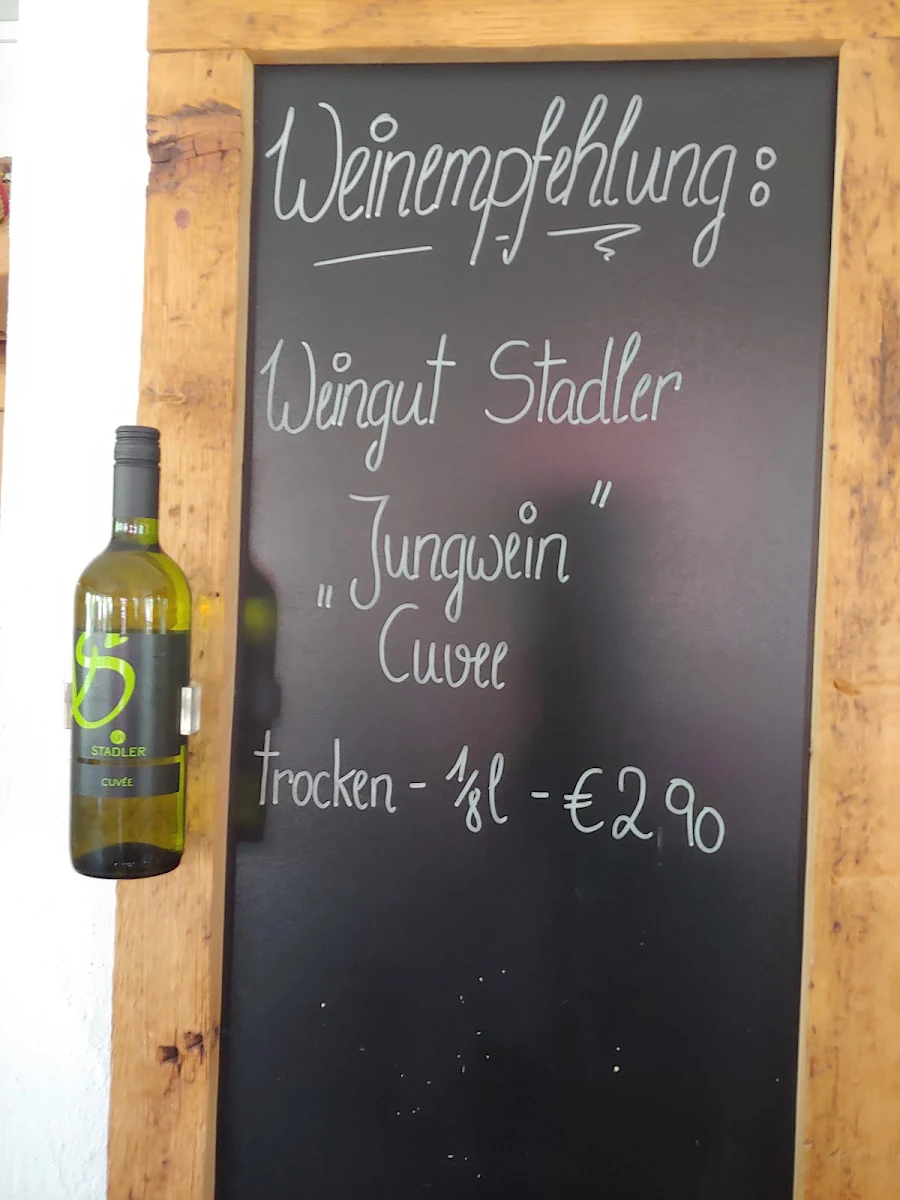 Weinempfehlung:
Weingut Stadler
„Jungwein"
Cuvee
trocken - 1/8l - € 2,90
STADLER
CUVÉE